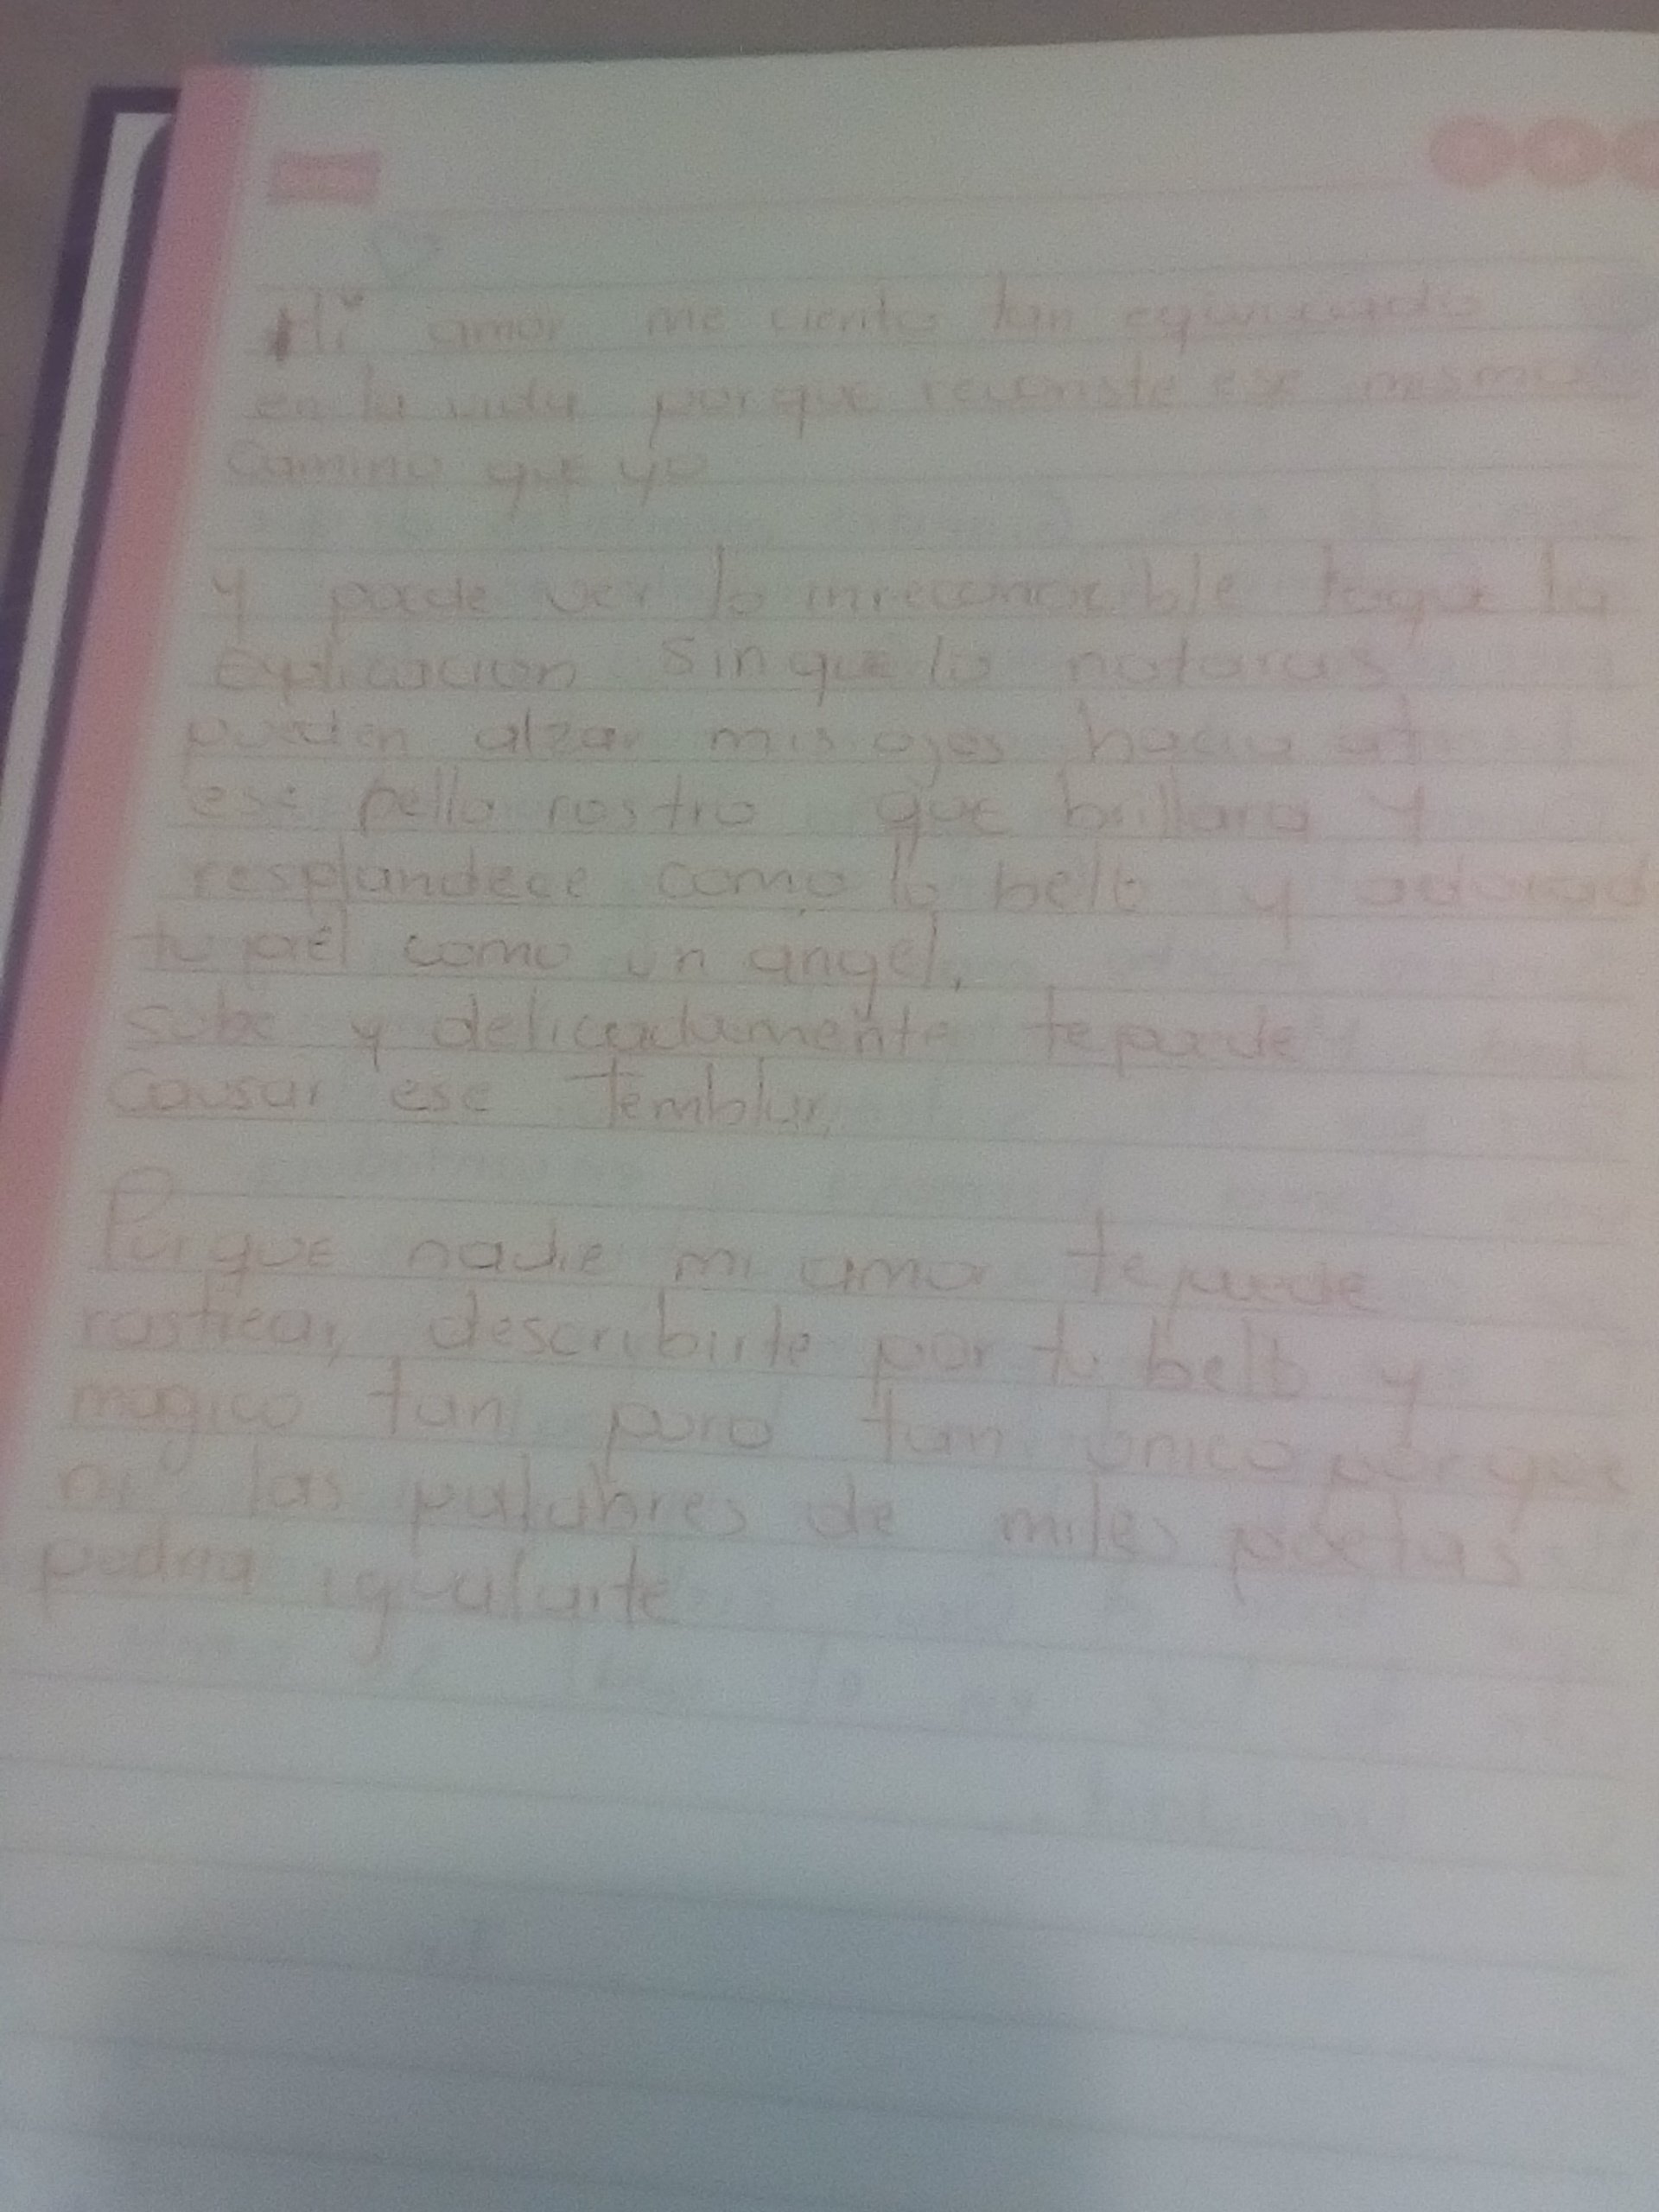 Mi amor me ciento tan equivocado
en la vida porque ese mismo
Camino que yo
y puede ver lo la
explicacion sin que lo notaras
pueden alzar mis ojos hacia
ese bello rostro que brillara y
resplandece como lo bello y
tu piel como un angel.
sube y delicadamente te puede
causar ese Temblor,
Porque nadie mi amor te puede
rastrear, describirte por tu bello y
magico tan puro tan unico porque
ni las palabras de miles poetas
podria igualarte